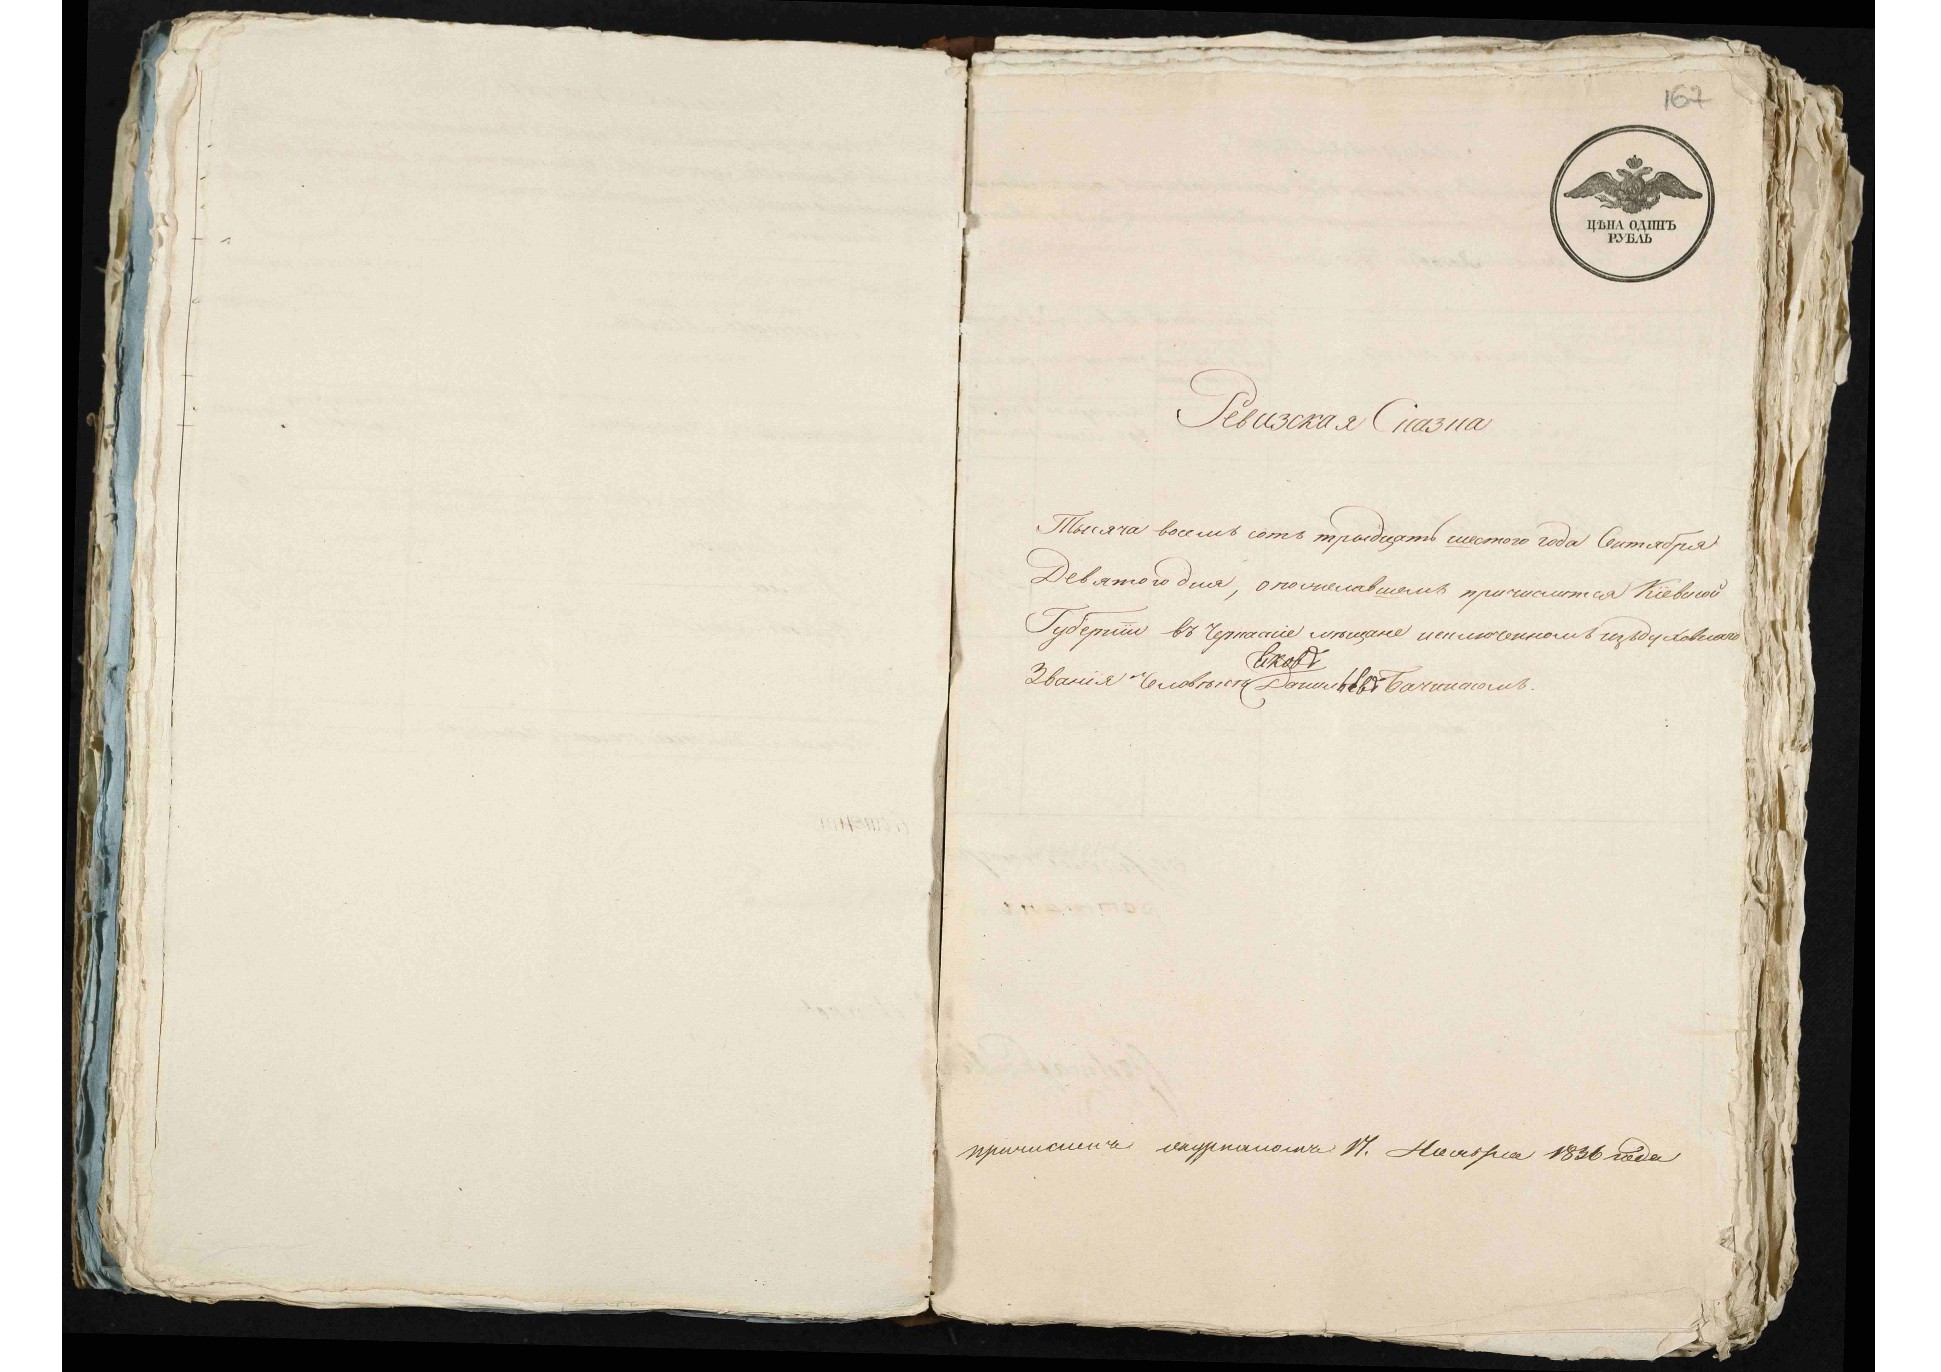 167
ЦѢНА ОДИНЪ
РУБЛЬ
Ревизская Сказка
Тысяча восемь сотъ тридцать шестого года Сентября
Девятого дня, о пожелавшемъ причислится Кіевской
Губерніи въ Черкаскіе мѣщане исключенномъ изъ духовнаго
Званія Человѣкѣ Бачинскомъ.
причисленъ журналомъ 17. Ноября 1836 года